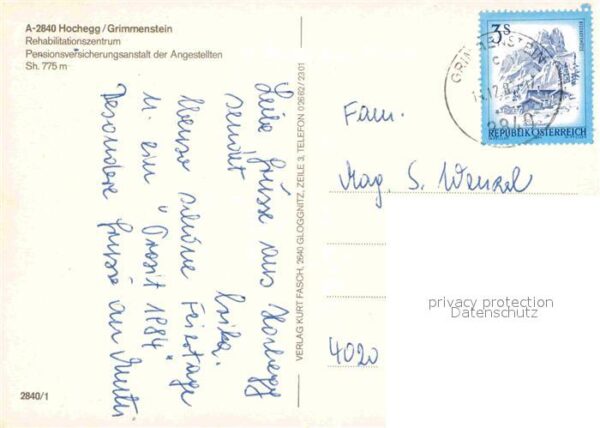 A-2840 Hochegg/Grimmenstein
Rehabilitationszentrum
Pensionsversicherungsanstalt der Angestellten
Sh. 775 m
Liebe Grüsse aus Hochegg
sendet
Ebenso schöne Feiertage
u. ein "Prosit 1984"
Besondere Grüsse an Mutti
2840/1
VERLAG KURT FASCH, 2640 GLOGGNITZ, ZEILE 3, TELEFON 02662/2301
3S
REPUBLIK ÖSTERREICH
GRIMMENSTEIN
2840
Fam.
Mag. S. Wenzel
4020
privacy protection
Datenschutz